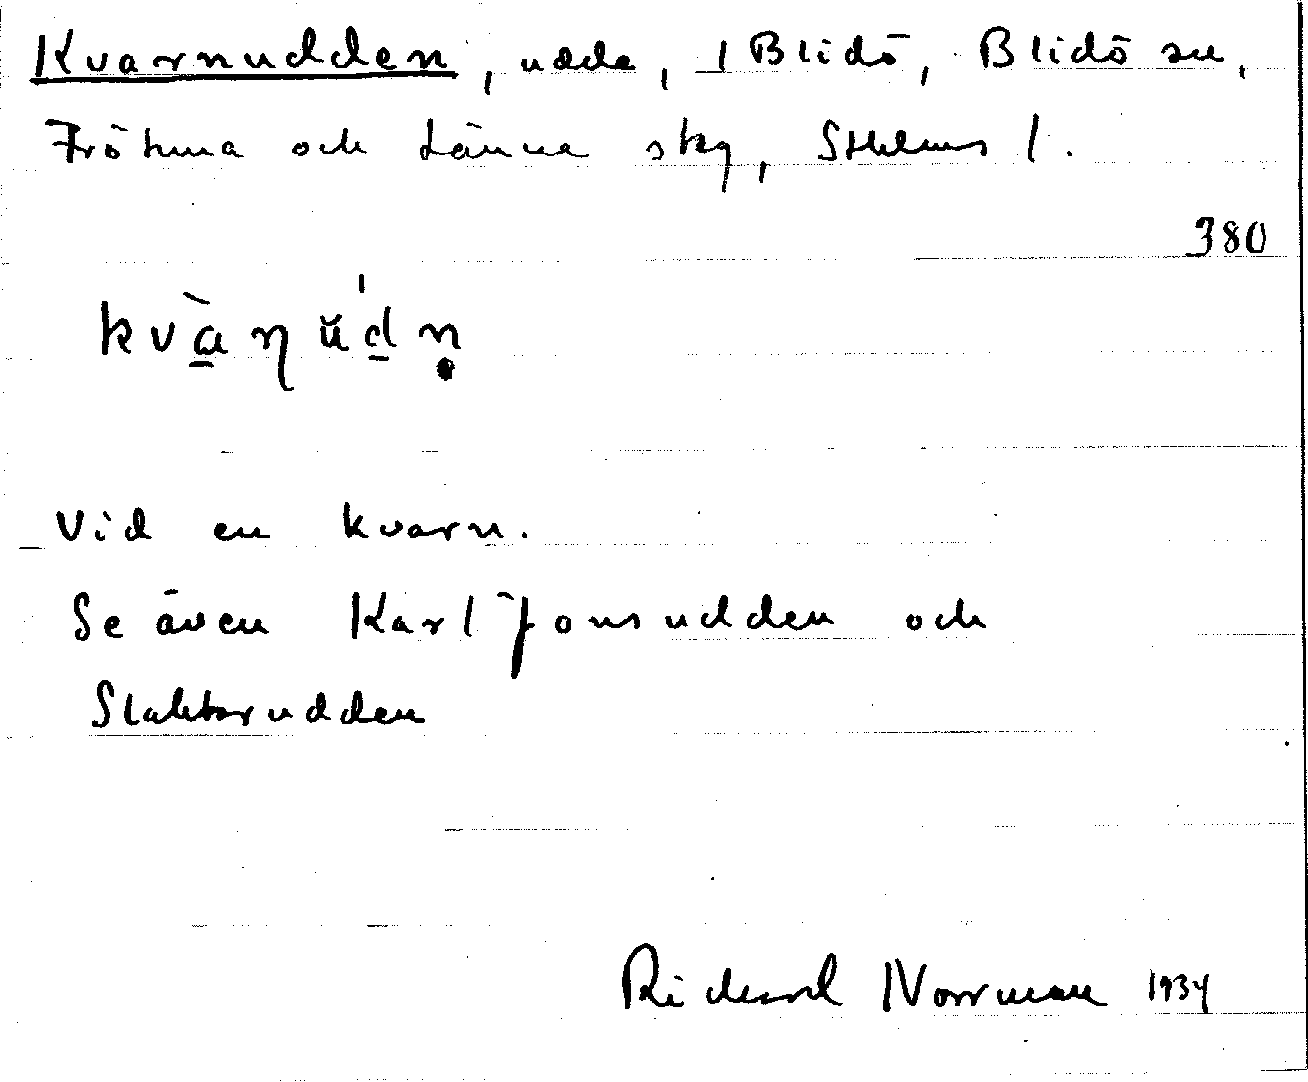 Kvarnudden, udde, I Blidö, Blidö sn,
Fröhma och Länna skg, Sthlms l.
380
kvàɳŭdn̥
Vid en kvarn.
Se även Karl Jonsudden och
Slaktarudden
Rickard Norrman 1934